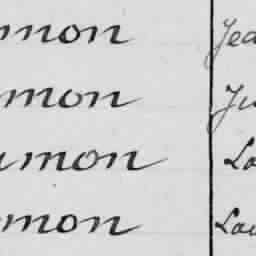 mon Jea
mon Ju
mon Lo
mon Lou